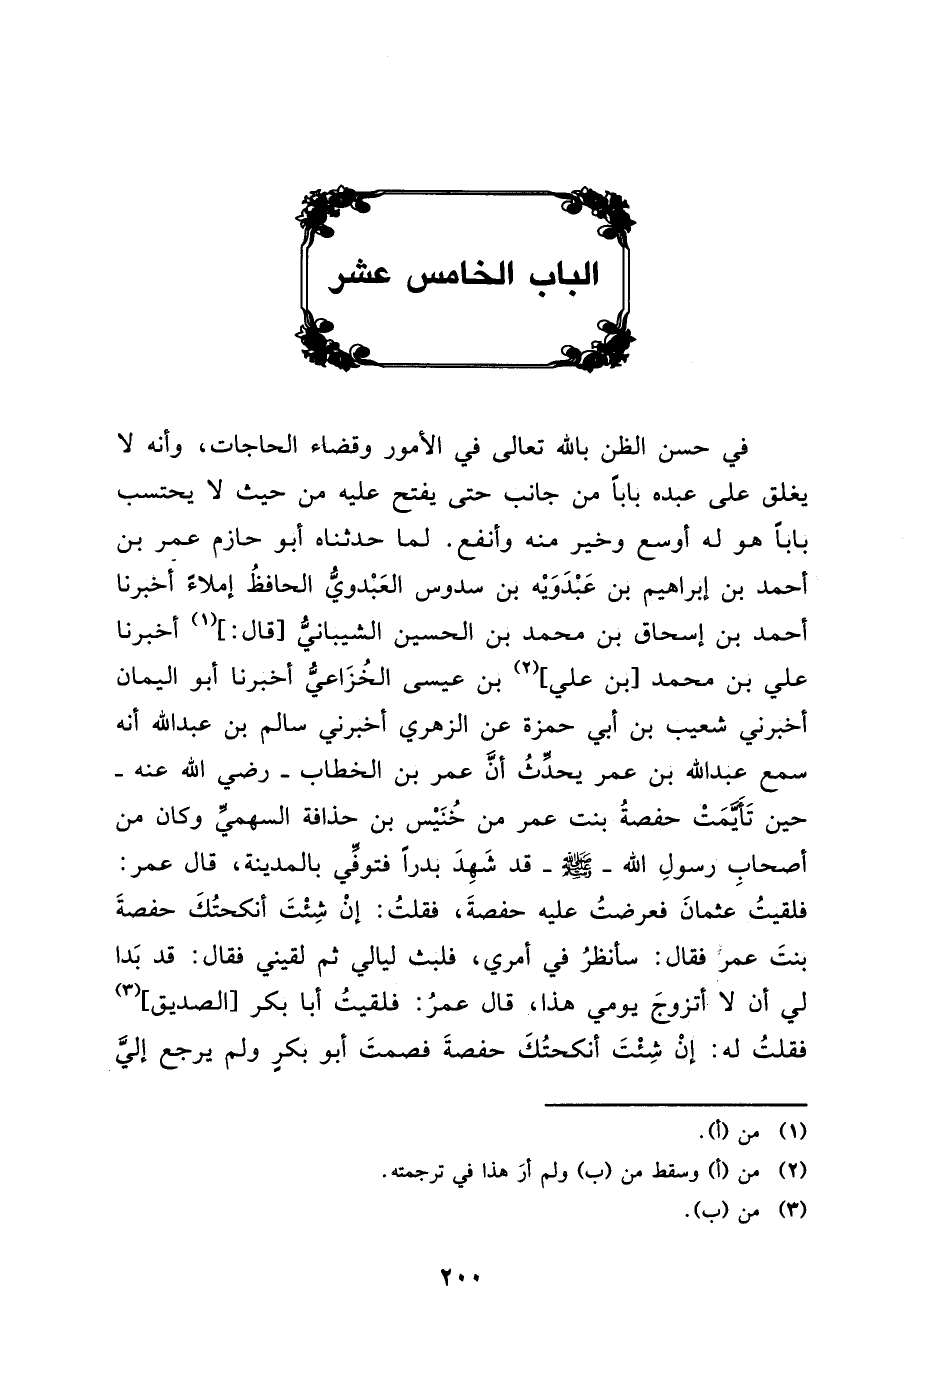 الباب الخامس عشر
في حسن الظن بالله تعالى في الأمور وقضاء الحاجات، وأنه لا
يغلق على عبده باباً من جانب حتى يفتح عليه من حيث لا يحتسب
باباً هو له أوسع وخير منه وأنفع. لما حدثناه أبو حازم عمر بن
أحمد بن إبراهيم بن عَبْدَوَيْه بن سدوس العَبْدويُّ الحافظُ إملاءً أخبرنا
أحمد بن إسحاق بن محمد بن الحسين الشيبانيُّ [قال:](١) أخبرنا
علي بن محمد [بن علي](٢) بن عيسى الخُزَاعيُّ أخبرنا أبو اليمان
أخبرني شعيب بن أبي حمزة عن الزهري أخبرني سالم بن عبدالله أنه
سمع عبدالله بن عمر يحدِّثُ أنَّ عمر بن الخطاب ـ رضي الله عنه ـ
حين تَأَيَّمَتْ حفصةُ بنت عمر من خُنَيْس بن حذافة السهميِّ وكان من
أصحابِ رسولِ الله ـ ﷺ ـ قد شَهِدَ بدراً فتوفِّي بالمدينة، قال عمر:
فلقيتُ عثمانَ فعرضتُ عليه حفصةَ، فقلتُ: إنْ شِئْتَ أنكحتُكَ حفصةَ
بنتَ عمرَ فقال: سأنظرُ في أمري، فلبث ليالي ثم لقيني فقال: قد بَدا
لي أن لا أتزوجَ يومي هذا، قال عمرُ: فلقيتُ أبا بكر [الصديق](٣)
فقلتُ له: إنْ شِئْتَ أنكحتُكَ حفصةَ فصمتَ أبو بكرٍ ولم يرجع إليَّ
(١) من (أ).
(٢) من (أ) وسقط من (ب) ولم أرَ هذا في ترجمته.
(٣) من (ب).
٢٠٠